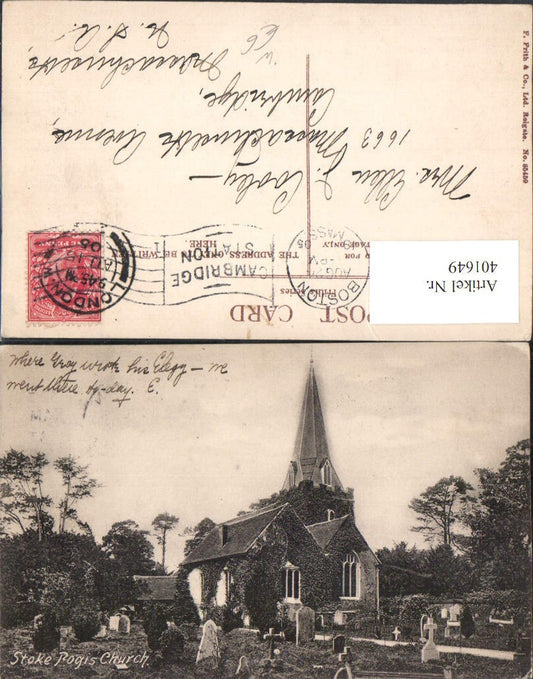 F. Frith & Co., Ltd. Reigate. No.
POST CARD
Frith's Series
THE ADDRESS ONLY
HERE.
BOSTON
AUG
05
MASS
CAMBRIDGE
STATION
LONDON
05
Mrs. Ellen
1663 Massachusetts Avenue,
Cambridge,
Massachusetts,
U. S. A.
Artikel Nr.
401649
where Gray wrote his Elegy – we
went there to-day. E.
Stoke Pogis Church.